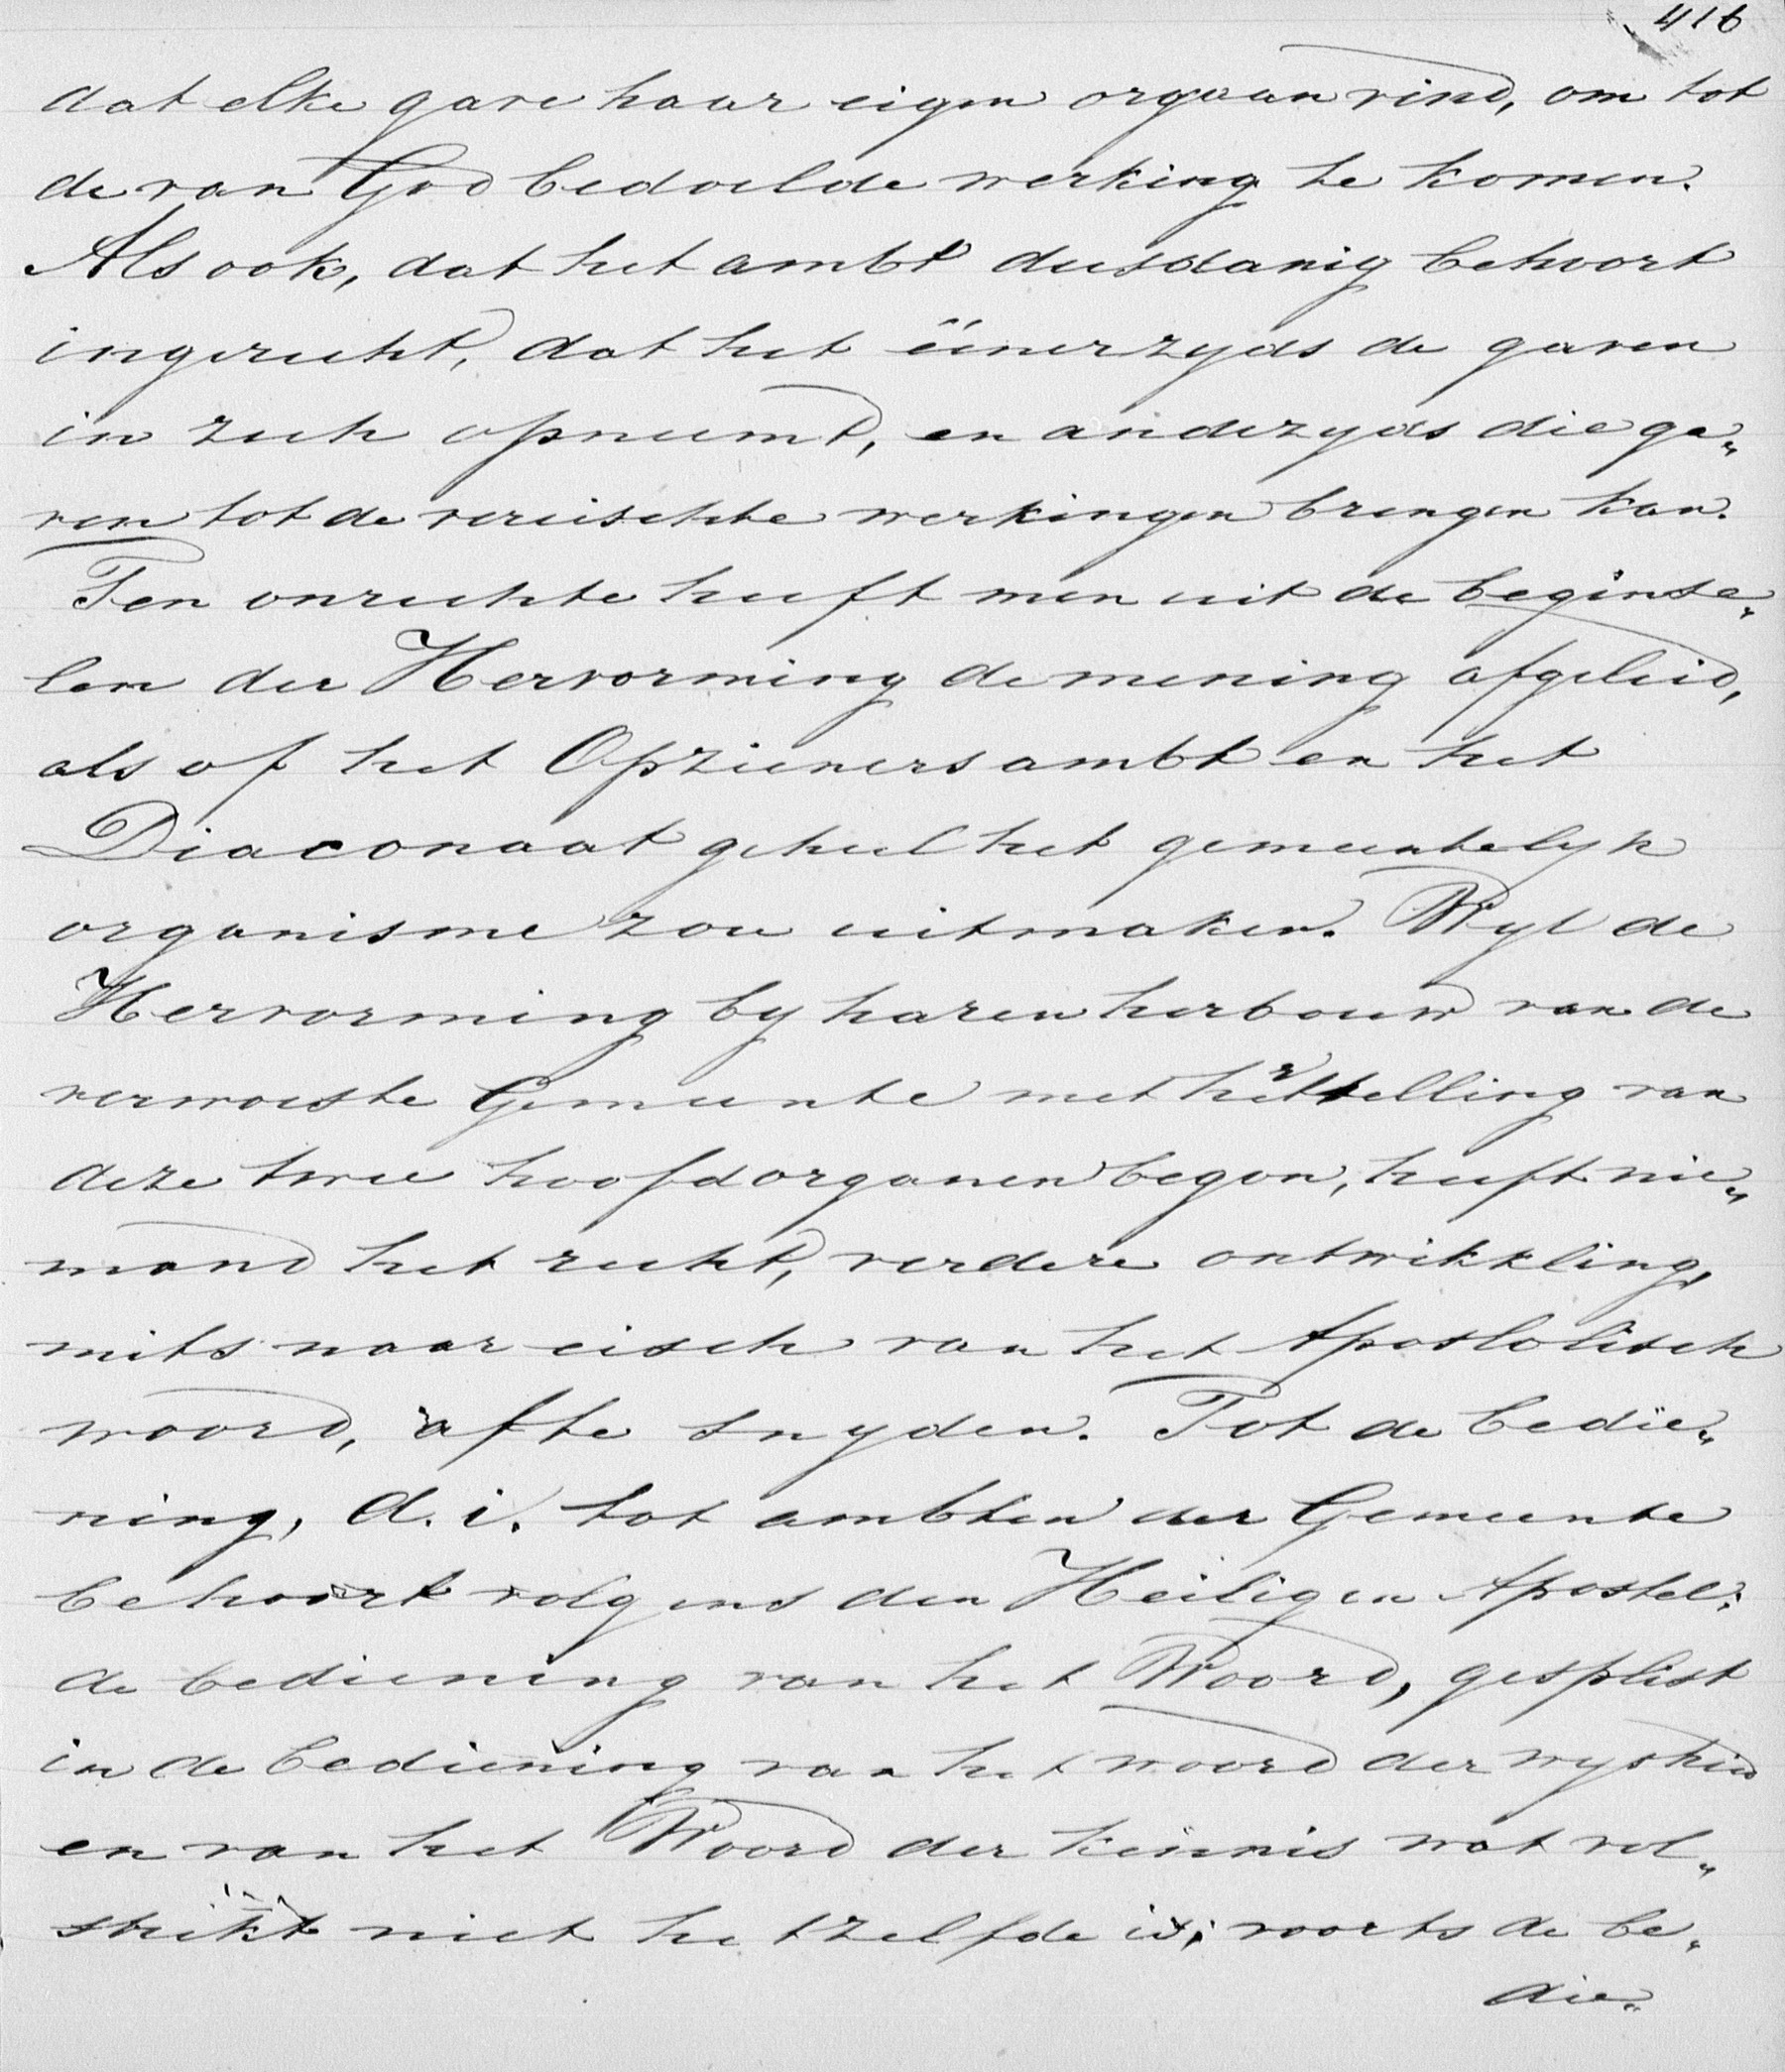 416
dat elke gave haar eigen orgaan vind, om tot
de van God bedoelde werking te komen.
Als ook, dat het ambt dusdanig behoort
ingericht, dat het éénerzyds de gaven
in zich opneemt, en anderzyds die ga„
ven tot de vereischte werkingen brengen kan.
Ten onrechte heeft men uit de beginse„
len der Hervorming de mening afgeleid,
als of het Opzienersambt en het
Diaconaat geheel het gemeentelyk
organisme zou uitmaken. Wyl de
Hervorming by haren herbouw van de
verwoeste Gemeente met herstelling van
deze twee hoofdorganen begon, heeft nie„
mand het recht, verdere ontwikkling,
mits naar eisch van het Apostolisch
woord, af te snyden. Tot de bedie„
ning, d.i. tot ambten der Gemeente
behoort volgens den Heiligen Apostel:
de bediening van het Woord, gesplist
in de bediening van het woord der wysheid
en van het Woord der kennis wat vol„
strekt niet hetzelfde is; voorts de be„
die„